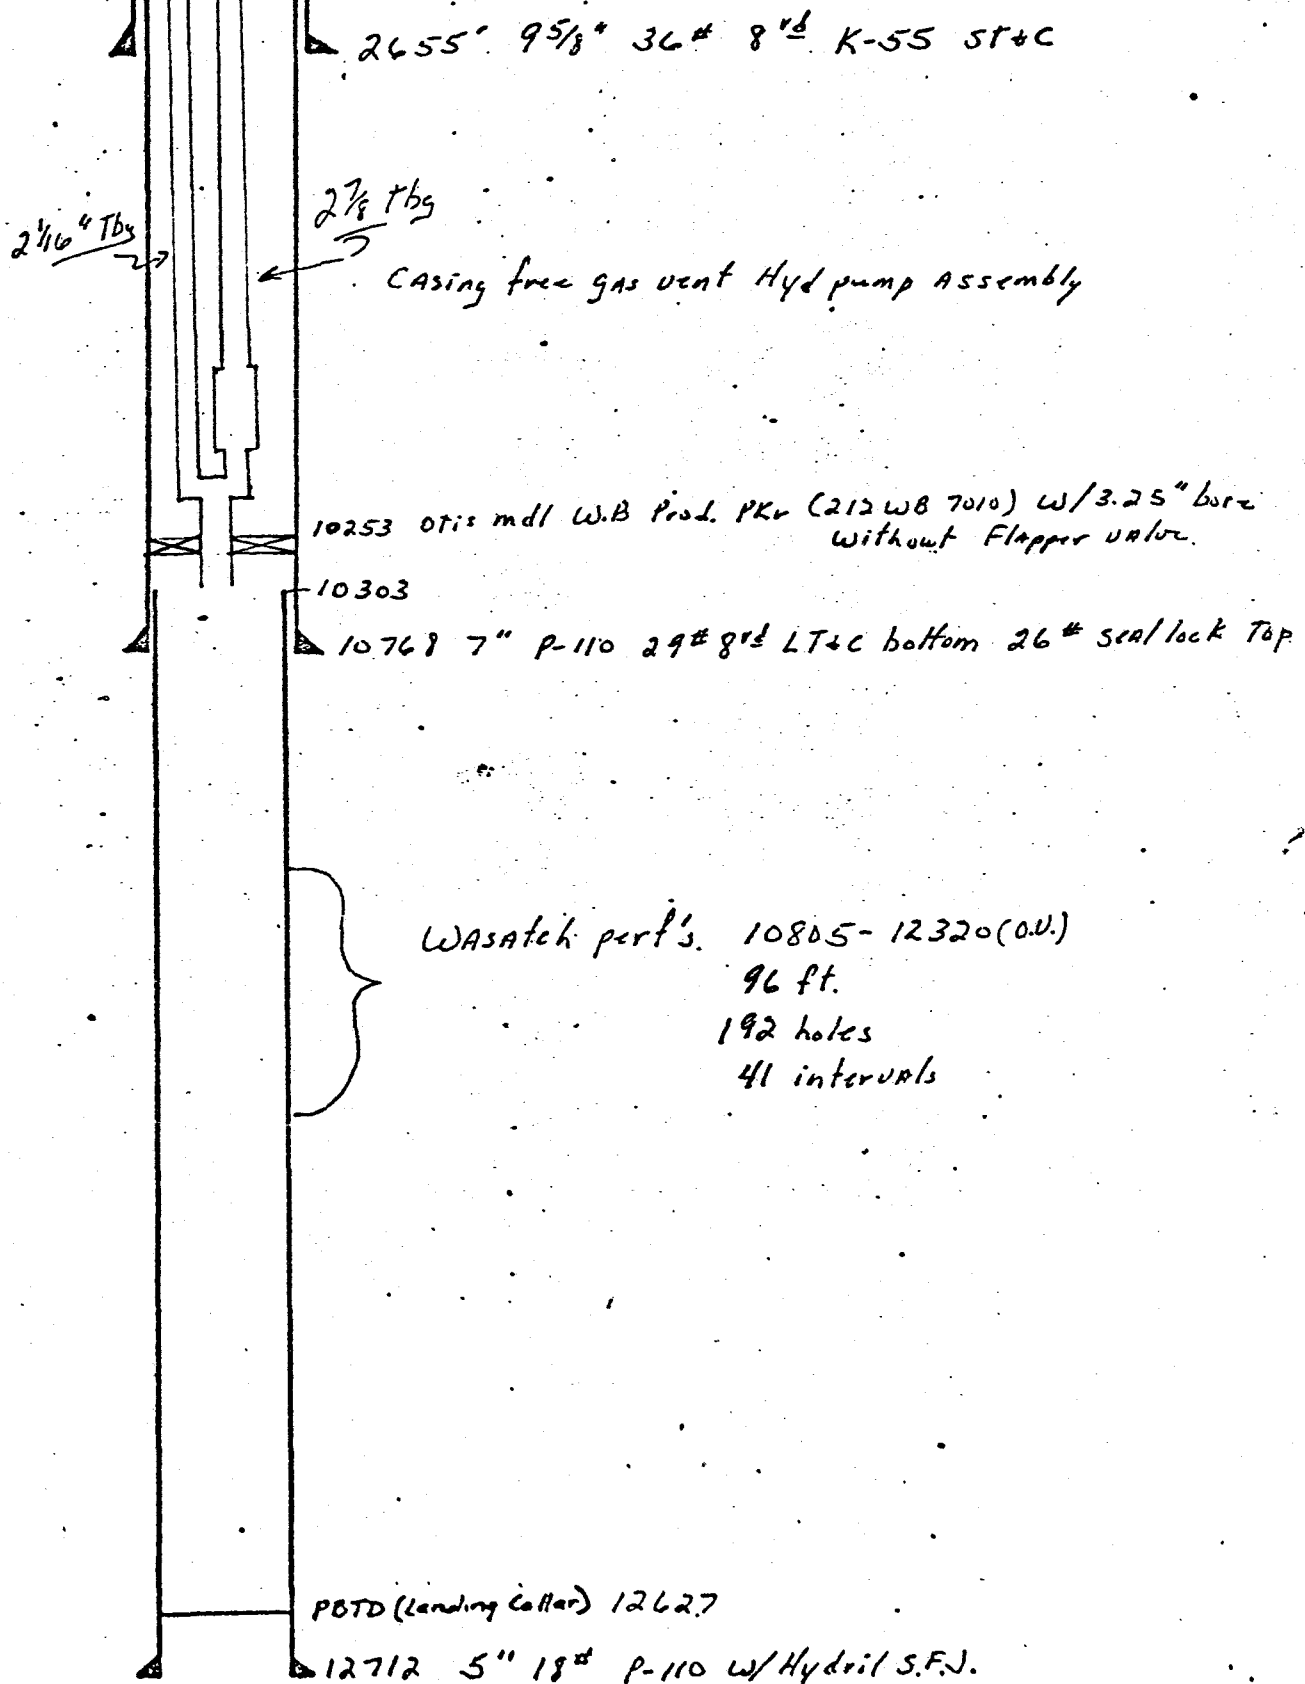 2655' 9 5/8" 36# 8rd K-55 ST&C
2 7/8 tbg
2 1/16" Tbg
Casing free gas vent Hyd pump Assembly
10253 Otis mdl W.B Prod. Pkr (212 WB 7010) w/3.25" bore
without Flapper valve.
10303
10768 7" P-110 29# 8rd LT&C bottom 26# seal lock Top
Wasatch perf's. 10805-12320 (O.V.)
96 ft.
192 holes
41 intervals
PBTD (Landing Collar) 12627
12712 5" 18# P-110 w/Hydril S.F.J.